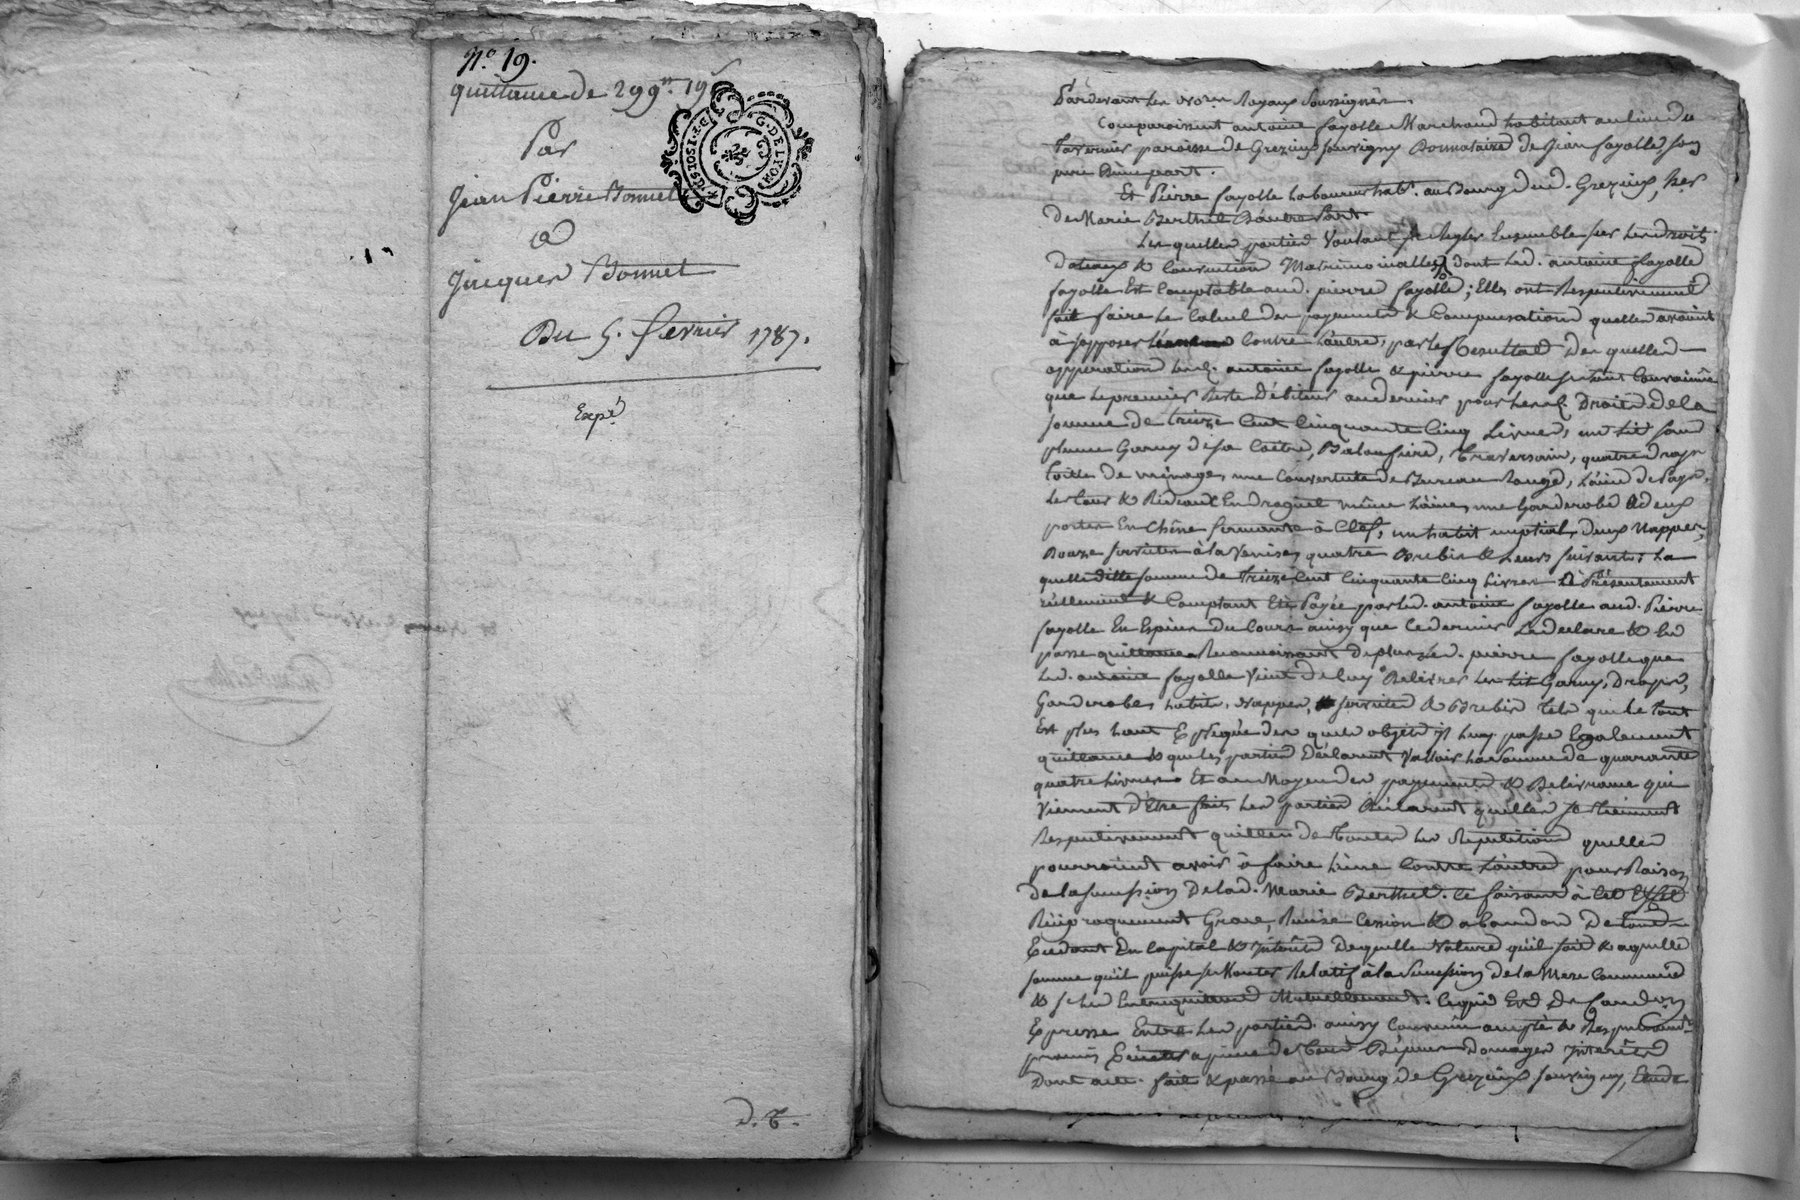 N.o 19.
quittance de 299tt. 19s
Par
Jean Pierre Bonnet
a
Jacques Bonnet
Du 5. fevrier 1787.
Expé
G. DE LYON
D. T.
Pardevant les Royaux soussignés.
Comparoissent antoine fayolle Marchand habitant au lieu du
Tavernier paroisse de Grezieu souvigny Donnataire de Jean fayolle son
pere d'une part.
Et Pierre fayolle laboureur habt. au Bourg dud. Grezieux, her
de Marie Berthet d'autre Part.
Lesquelles parties voulant se Regler Ensemble sur les droits
Dotaux & Matrimonialles dont led. antoine fayolle
fayolle Est Comptable aud. pierre fayolle; Elles ont Respectivement
fait faire le Calcul des payements & Compensations quelles avoient
à s'opposer l'une Contre l'autre, par le Resultat des quelles
opperations les d. antoine fayolle & pierre fayolle Convaincus
que le premier Reste Débiteur au dernier pour les d. Droits de la
somme de treize Cent Cinquante Cinq Livres, un lit sans
plume Garny de sa Coetre, Traversain, quatre draps
toille de ménage, une Couverture de Bureau Rouge,
les tour & Rideaux En même Laine, une Garderobe a deux
portes En Chêne fermante à Clef, un habit nuptial, deux Nappes,
douze serviettes à la Venise, quatre Brebis & Leurs suivants; La
quelle ditte somme de treize Cent Cinquante Cinq Livres a Présentement
réellement & Comptant Eté Payée par led. antoine fayolle aud. Pierre
fayolle En Especes du Cours ainsy que Ce dernier Le declare & En
passe quittance Reconnoissant de plus led. pierre fayolle que
led. antoine fayolle Vient de luy Relivrer les lit Garny, Draps,
Garderobe, habits, Nappes, serviettes & Brebis tels que le tout
Est plus haut Expliqué des quels objets il luy passe Egalement
quittance & que les parties Déclarent Valloir la somme de quarante
quatre Livres. Et au Moyen des payements & Relivrance qui
Viennent d'Etre faits les parties Déclarent quelles se tiennent
Respectivement quittes de toutes les Repetitions quelles
pourroient avoir à faire l'une Contre l'autre pour Raison
de la succession de lad. Marie Berthet. Ce faisant à Cet Effet
Reciproquement Grace, Remise Cession & abandon De tout
Excedant En Capital & Interêts De quelle Nature qu'il soit & a quelle
somme qu'il puisse se Monter Relatif à la Succession de la Mere Commune
& Mutuellement. Ce qui Est De Condon
Expresse Entre les parties. ainsy Convenu accepté &
promis Executer a peine de tous Dépens Domages Interêts
Dont acte. fait & passé au Bourg de Grezieux souvigny, Etude